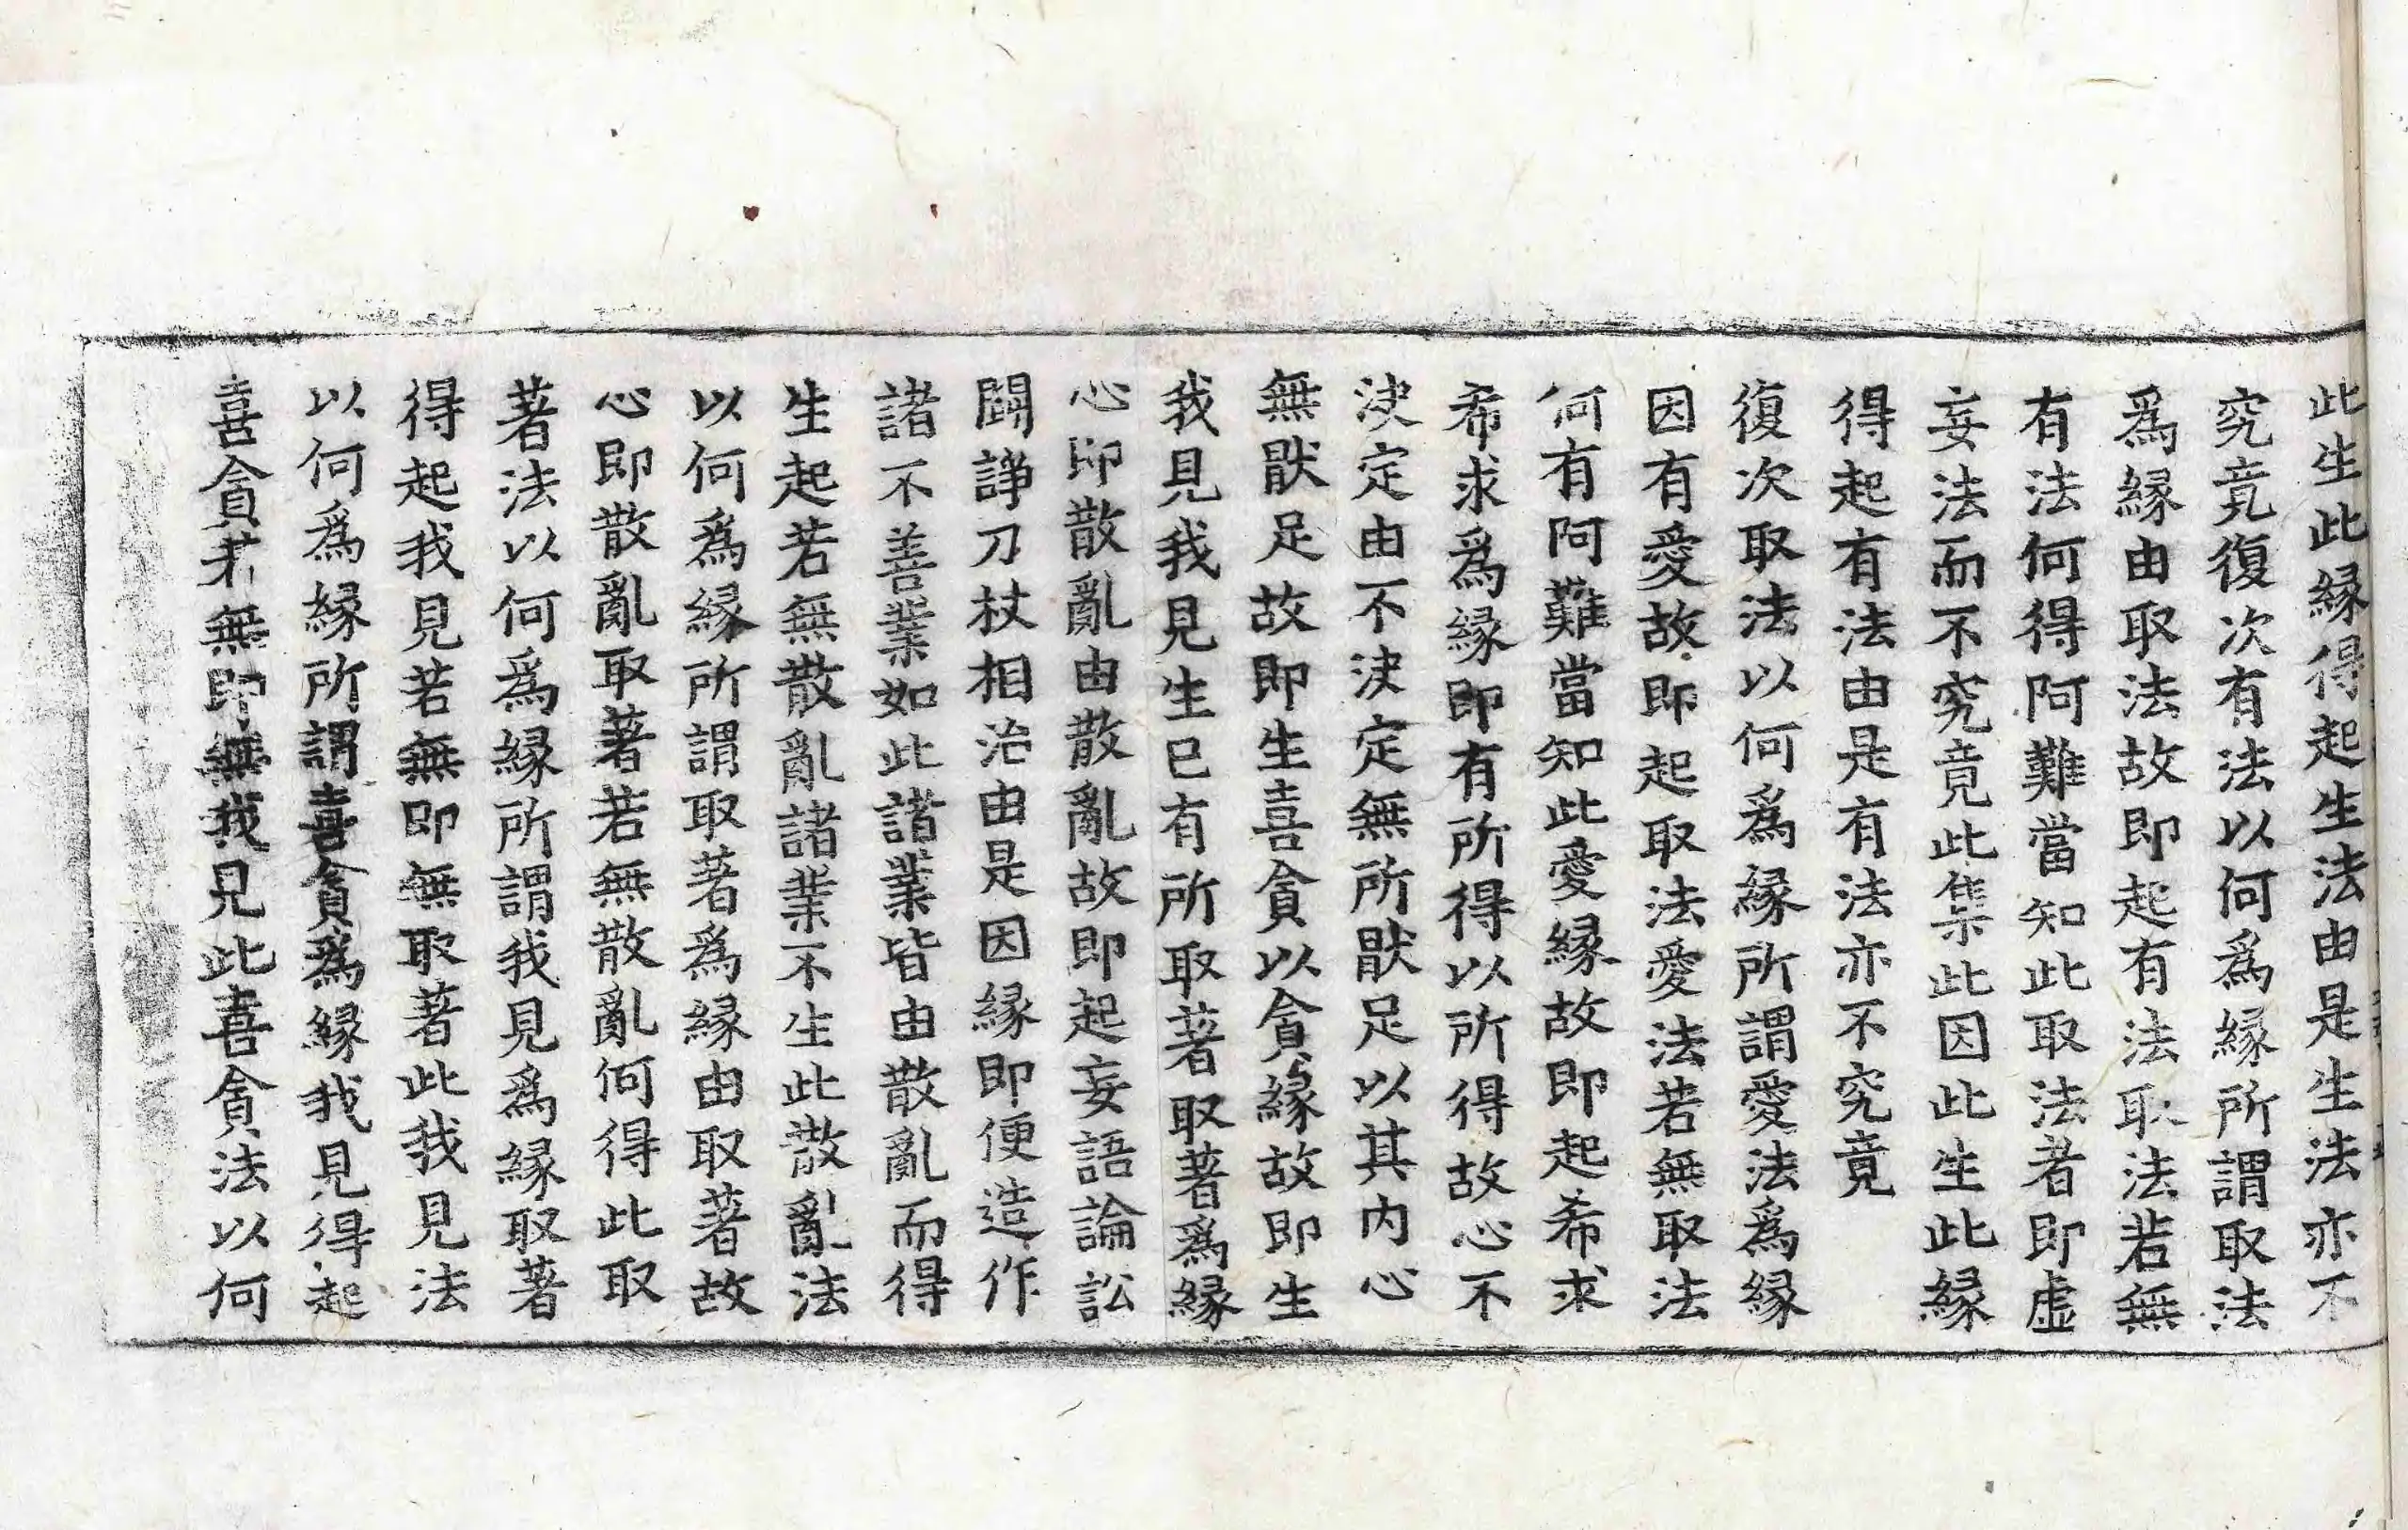 此生此緣得起生法由是生法亦不
究竟復次有法以何爲緣所謂取法
爲緣由取法故即起有法取法若無
有法何得阿難當知此取法者即虛
妄法而不究竟此集此因此生此緣
得起有法由是有法亦不究竟
復次取法以何爲緣所謂愛法爲緣
因有愛故即起取法愛法若無取法
何有阿難當知此愛緣故即起希求
希求爲緣即有所得以所得故心不
決定由不決定無所猒足以其内心
無猒足故即生喜貪以貪緣故即生
我見我見生已有所取著取著爲緣
心即散亂由散亂故即起妄語論訟
鬪諍刀杖相治由是因緣即便造作
諸不善業如此諸業皆由散亂而得
生起若無散亂諸業不生此散亂法
以何爲緣所謂取著爲緣由取著故
心即散亂取著若無散亂何得此取
著法以何爲緣所謂我見爲緣取著
得起我見若無即無取著此我見法
以何爲緣所謂喜貪爲緣我見得起
喜貪若無即無我見此喜貪法以何